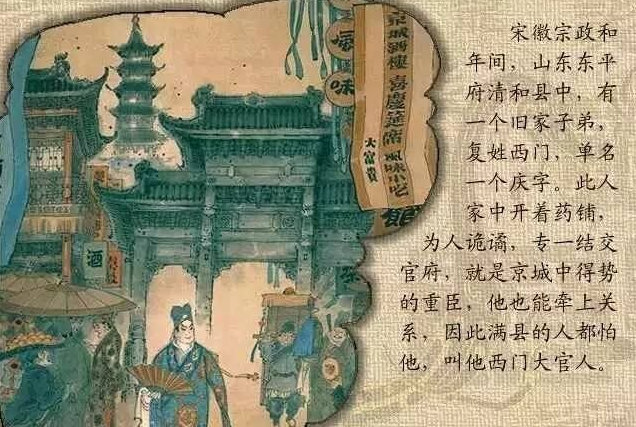 宋徽宗政和
年间，山东东平
府清和县中，有
一个旧家子弟，
复姓西门，单名
一个庆字。此人
家中开着药铺，
为人诡谲，专一结交
官府，就是京城中得势
的重臣，他也能牵上关
系，因此满县的人都怕
他，叫他西门大官人。
風味
大富貴
酒
館